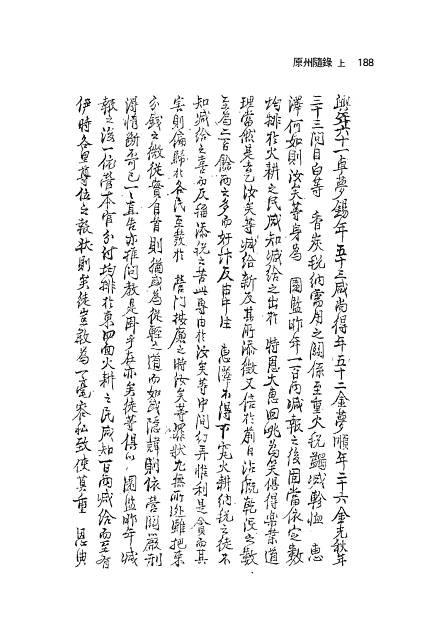 原州隨錄 上 188
年六十一卓夢錫年五十三咸尚得年五十二金夢順年二十六金光秋年
三十三問目白等 香炭稅納需用之關係至重火稅蠲減軫恤 惠
澤何如則汝矣等身為 園監昨年一百兩減報之後固當依定數
均排於火耕之民咸知減給之出於 特恩大惠回眺為笑俱得樂業道
理當然是去乙汝矣等減給新反其所添徵又倍於前日
至為二百餘兩之多而 惠隱不得下究火耕納稅之徒不
知減給之喜而反稱添稅之苦此專由於汝矣等中間幻弄惟利是貪而其
害則偏歸於各民至發於 營門按廉之時汝矣等罪狀九無所逃雖把束
分錢之徵從實自首則猶或為從輕之道而如或隱諱則依營關嚴刑
得情斷不已一一直告亦推問教是臥乎在亦矣徒等得以 園監昨年減
報之後一依營本官分付均排於東四面火耕之民咸知百兩減給而至有
伊時各里尊位之報狀則矣徒豈敢為一毫參私致使莫重 恩典